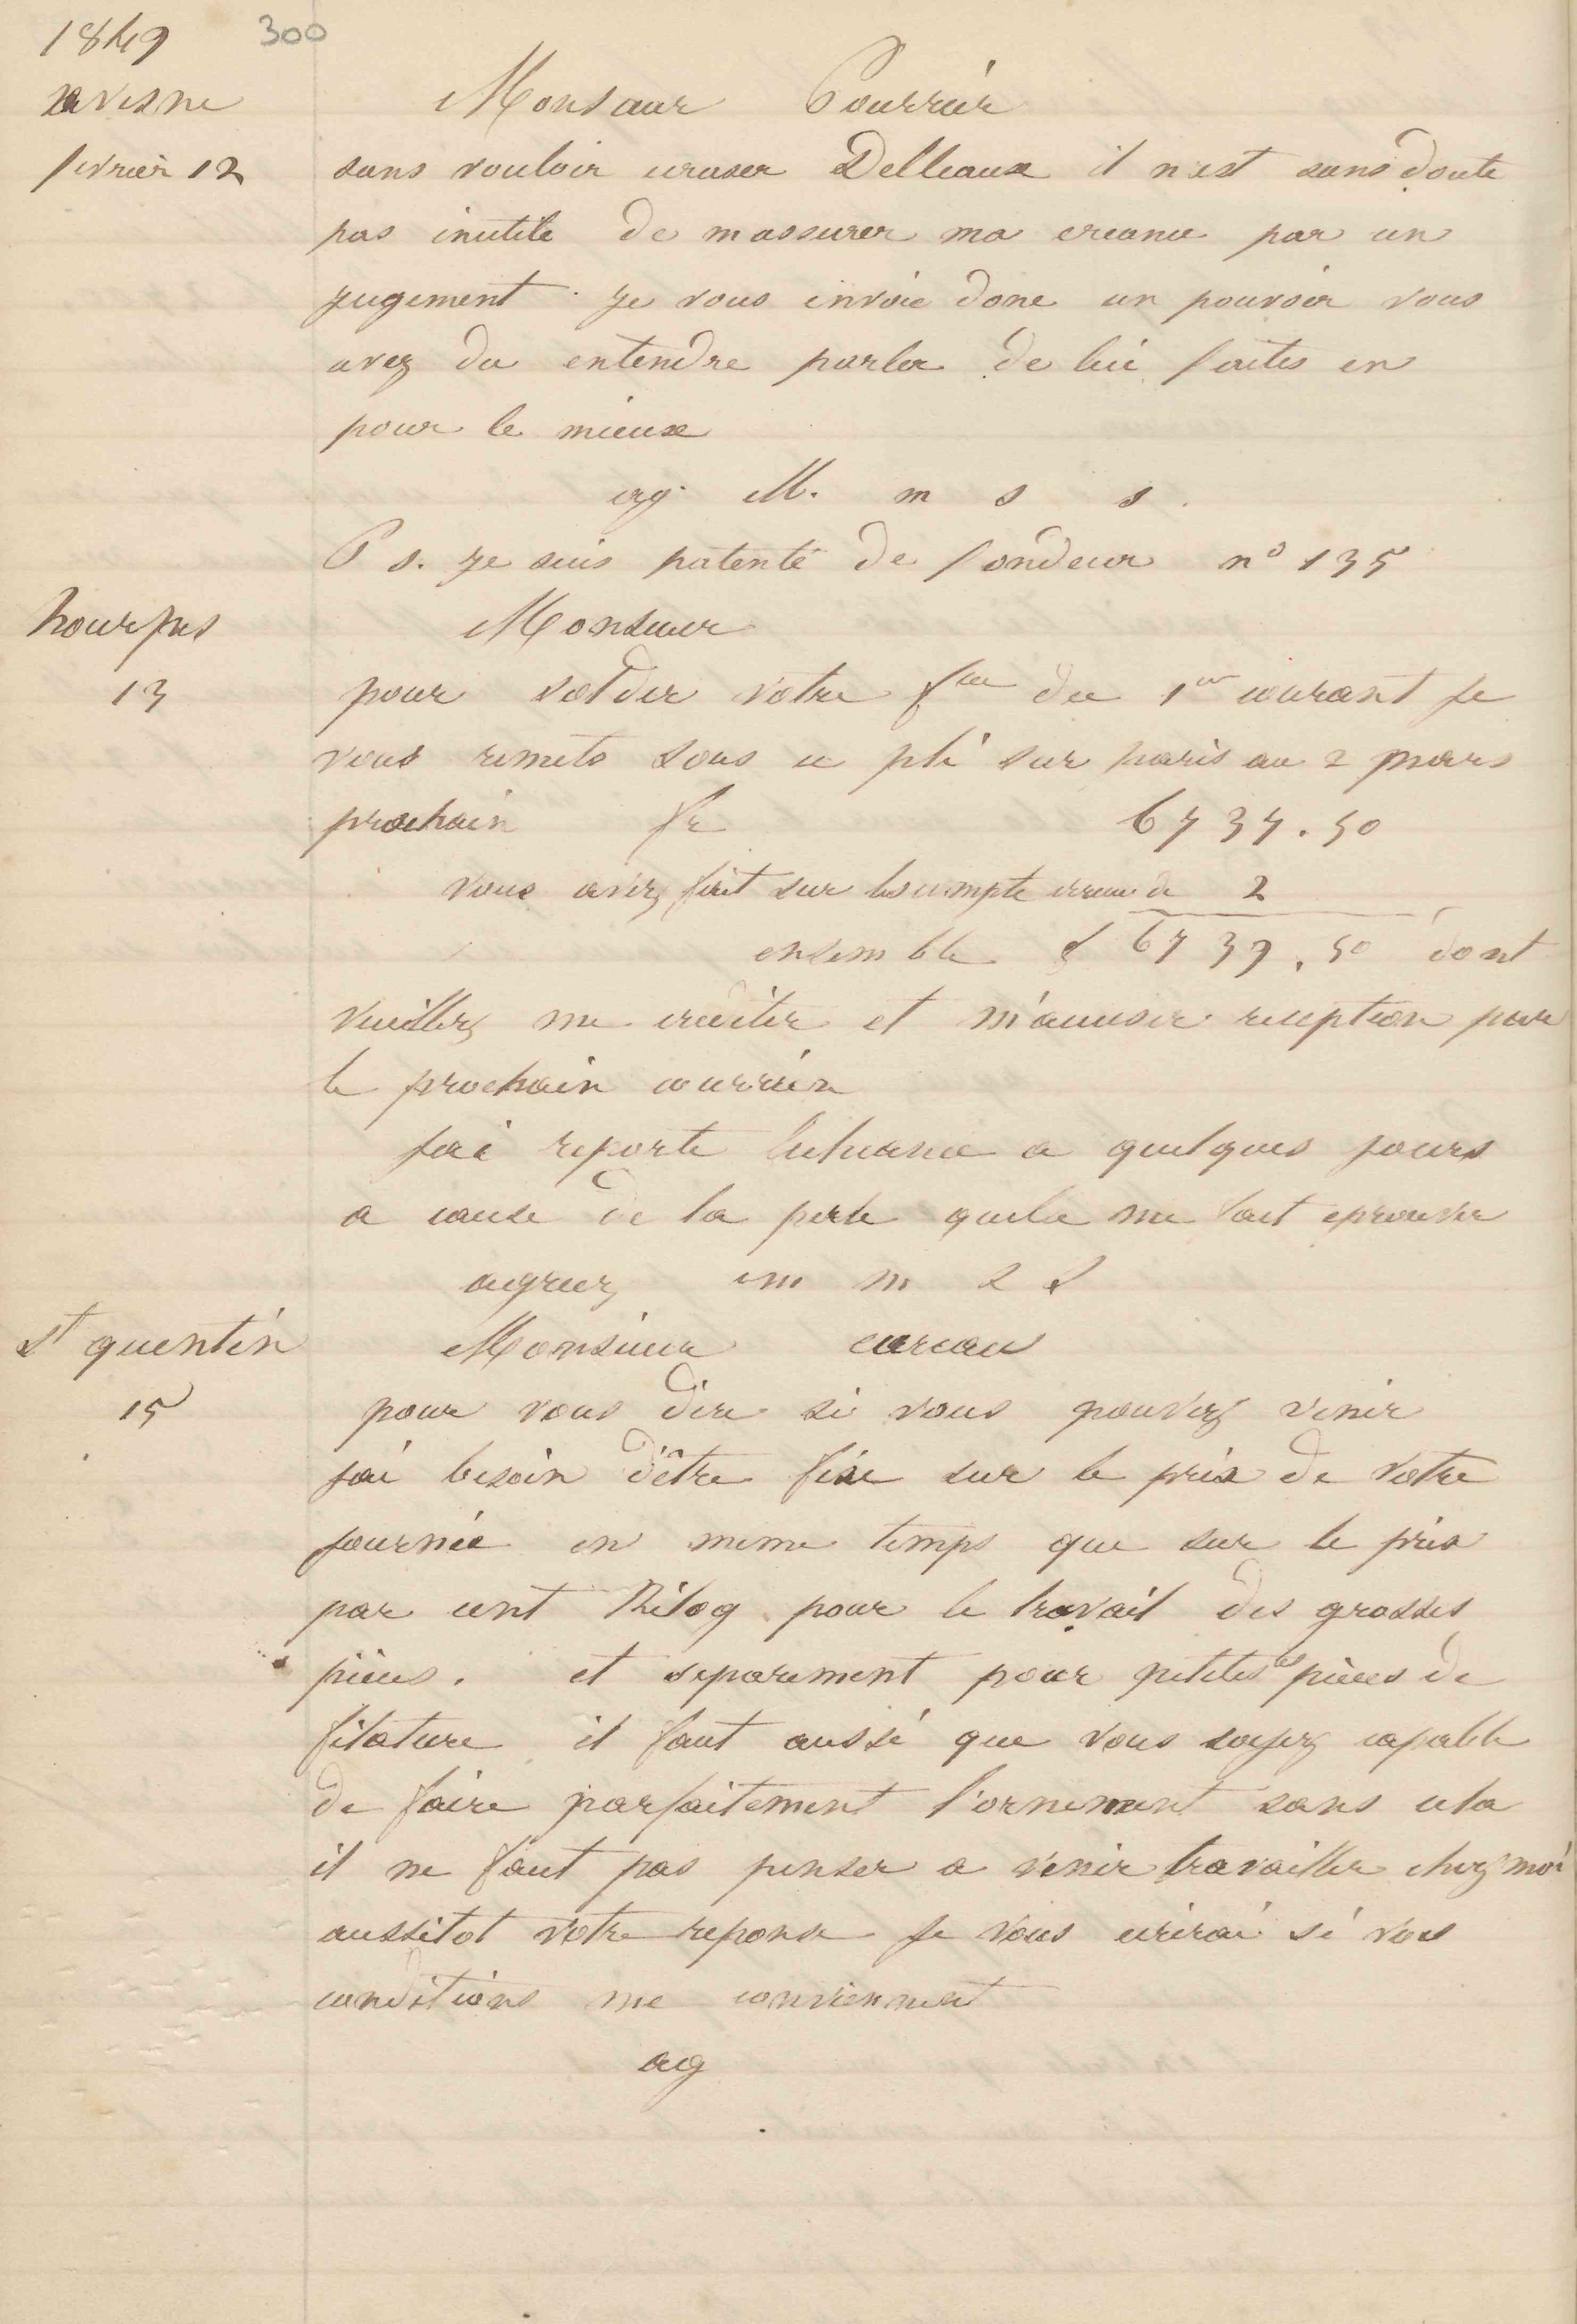 1849 300
avesne Monsieur Pourrier
fevrier 12 sans vouloir ecraser Delleaux il n'est sans doute
pas inutile de massurer ma creance par un
jugement. je vous envoie donc un pouvoir vous
avez du entendre parler de lui faites en
pour le mieux
ag. M. m s s.
P s. je suis patenté de fondeur n° 135
hourpes Monsieur
13 pour solder votre fre du 1er courant je
vous remets sous ce pli sur paris au 2 mars
prochain fr 6737.50
vous avez fait sur lescompte erreur de 2
ensemble f 6739.50 dont
veuillez me crediter et m'accuser reception par
le prochain courrier
jai reporte lecheance a quelques jours
a cause de la perte quelle me fait eprouver
agreez m m s s
st quentin Monsieur careau
15 pour vous dire si vous pouvez venir
jai besoin d'être fixe sur le prix de votre
journée en meme temps que sur le prix
par cent Kilog pour le travail des grosses
pieces. et separement pour petites les pièces de
filature il faut aussi que vous soyez capable
de faire parfaitement l'ornement sans cela
il ne faut pas penser a venir travailler chez moi
aussitot votre reponse je vous ecrirai si vos
conditions me conviennent
ag